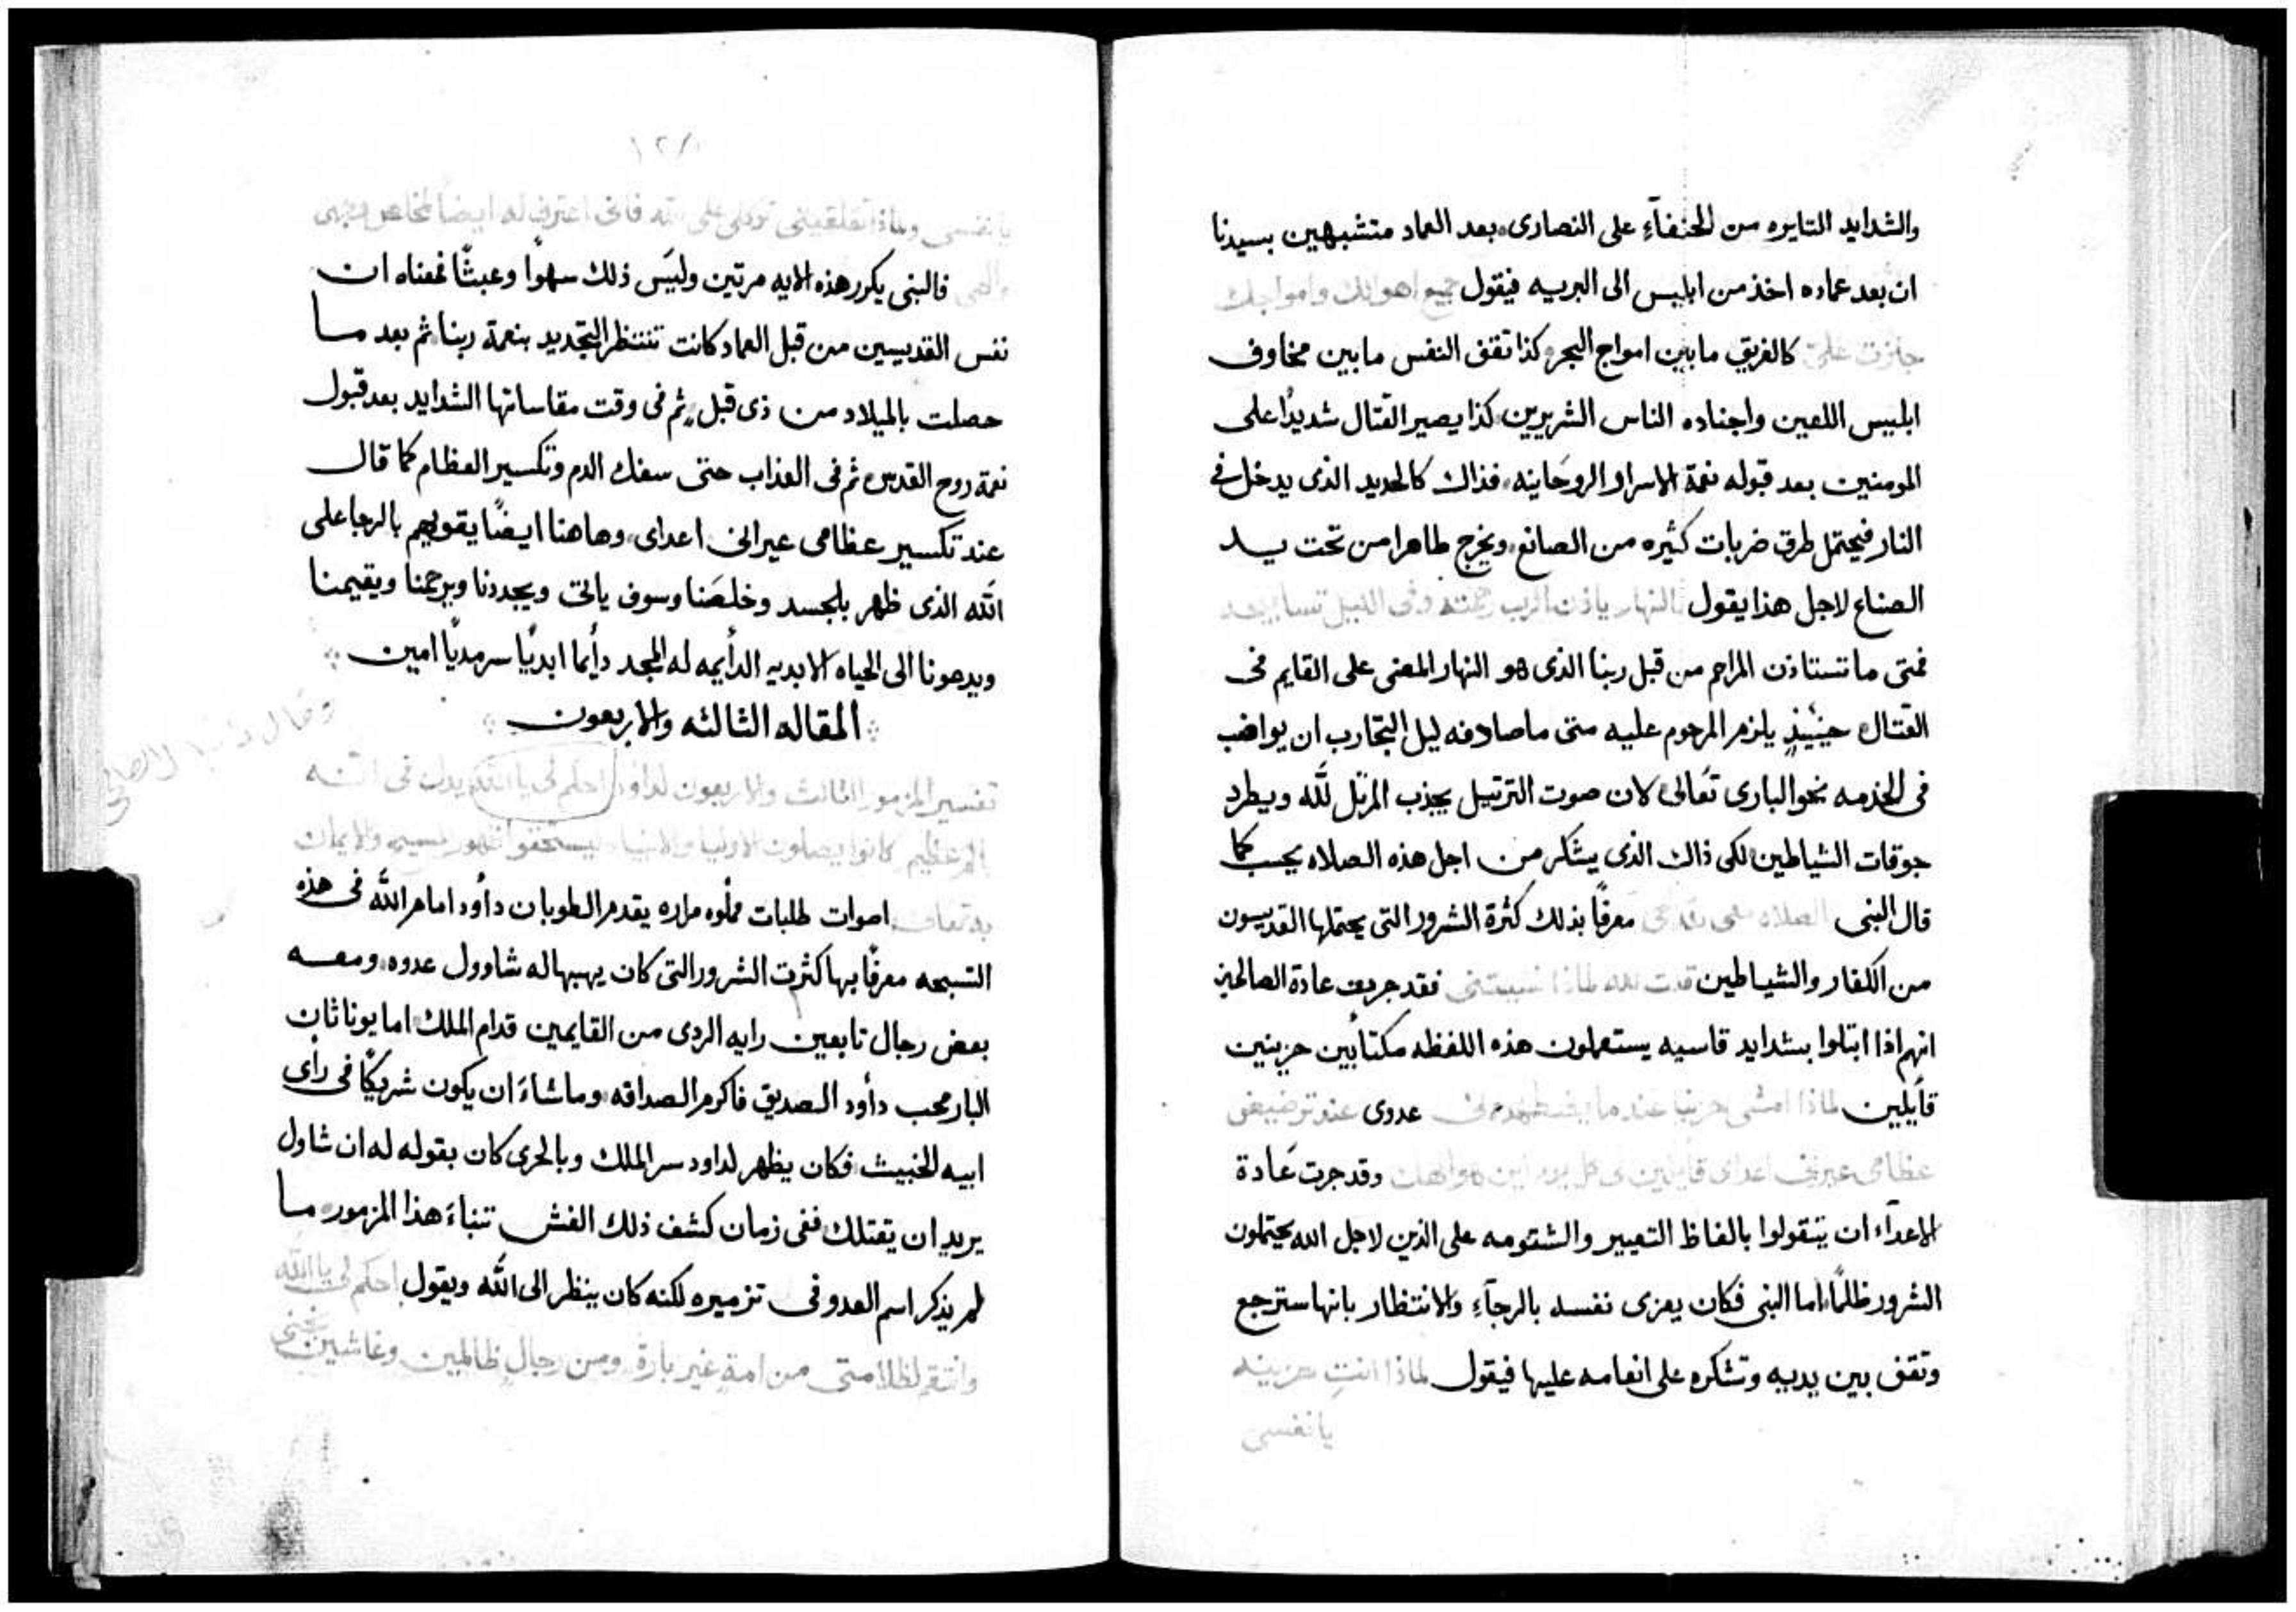 والشدايد التايره من الحنفآءِ على النصارى بعد العماد متشبهين بسيدنا
ان بعد عماده اخذ من ابليس الى البريه فيقول جميع اهوالك وامواجك
جازت عليّ كالغريق مابين امواج البحر وكذا تقف النفس مابين مخاوف
ابليس اللعين واجناده الناس الشريرين كذا يصير القتال شديدًا على
المومنين بعد قبوله نعمة الاسرار الروحانيه فذاك كالحديد الذى يدخل في
النار فيحتمل طرق ضربات كثيره من الصانع ويخرج طاهرا من تحت يد
الصناع لاجل هذا يقول بالنهار ياذن الرب رحمته وفى الليل
فمتى ما تستاذن المراحم من قبل ربنا الذى هو النهار المعنى على القايم فى
القتال حينيذٍ يلزم المرحوم عليه متى ما صادفه ليل التجارب ان يواضب
فى الخدمه نحو البارى تعالى لان صوت الترتيل يجذب المرتل لله ويطرد
جوقات الشياطين لكى ذاك الذى يشكر من اجل هذه الصلاه يحسب كما
قال النبى الصلاه معرفًا بذلك كثرة الشرور التى يحتملها القديسون
من الكفار والشياطين قلت لله لماذا نسيتنى فقد جريت عادة الصالحين
انهم اذا ابتلوا بشدايد قاسيه يستعملون هذه اللفظه مكتابين حزينين
قايلين لماذا امشى حزينا عندما يضطهدنى عدوى عند ترضيض
عظامى عيرنى اعداى قايلين لى كل يوم اين هو الهك وقد جرت عَادة
الاعدآء ان يتقولوا بالفاظ التعيير والشتومه على الذين لاجل الله يحتملون
الشرور ظلمًا اما النبى فكان يعزى نفسه بالرجآءِ والانتظار بانها سترجع
وتقف بين يديه وتشكره على انعامه عليها فيقول لماذا انتِ حزينه
يا نفسى
يا نفسى ولماذا تقلقيننى توكلى على الله فانى اعترف له ايضا خلاص وجهى
والهى فالنبى يكرر هذه الايه مرتين وليَس ذلك سهوًا وعبثًا فمعناه ان
نفس القديسين من قبل العماد كانت تنتظر التجديد بنعمة ربنا ثم بعد ما
حصلت بالميلاد من ذى قبل ثم فى وقت مقاساتها الشدايد بعد قبول
نعمة روح القدس ثم فى العذاب حتى سفك الدم وتكسير العظام كما قال
عند تكسير عظامى عيرانى اعداى وهاهنا ايضًا يقويهم بالرجا على
الله الذى ظهر بالجسد وخلصَنا وسوف ياتى ويجددنا ويرحمنا ويقيمنا
ويدعونا الى الحياه الابديه الدأيمه له المجد دأيما ابديًا سرمديًا امين
المقاله الثالثه والاربعون
تفسير المزمور الثالث والاربعون لداود احكم لى يا الله يدل فى انه
كانوا يصلون الاوليا والانبياء ليستحقوا ظهور المسيح والايمان
اصوات طلبات مملوه مراره يقدم الطوبان دأود امام الله فى هذه
التسبحه معرفًا بها كثرت الشرور التى كان يهبها له شاوول عدوه ومعه
بعض رجال تابعين رايه الردى من القايمين قدام الملك اما يوناثان
البار محب دأود الصديق فاكرم الصداقه وما شاءَ ان يكون شريكًا فى رأى
ابيه الخبيث فكان يظهر لداود سر الملك وبالحرى كان بقوله له ان شاول
يريد ان يقتلك ففى زمان كشف ذلك الغش تنباءَ هذا المزمور ما
لم يذكر اسم العدو فى تزميره لكنه كان ينظر الى الله ويقول احكم لى يا الله
وانتقم لظلامتى من امةٍ غير بارة ومن رجالٍ ظالمين وغاشين نجنى